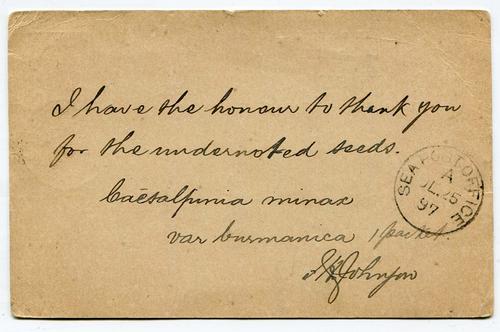 I have the honour to thank you
for the undernoted seeds.
Caësalpinia minax
var burmanica 1 packet.
Johnson
SEA POST OFFICE
A
JL.25
97